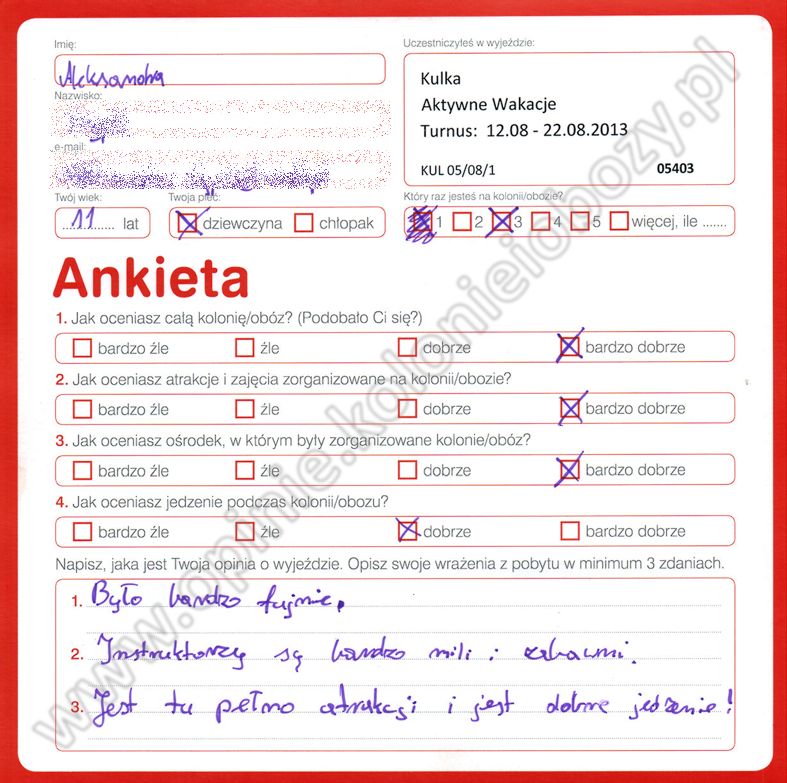 Imię:
Aleksandra
Uczestniczyłeś w wyjeździe:
Kulka
Aktywne Wakacje
Turnus: 12.08 - 22.08.2013
KUL 05/08/1 05403
Nazwisko:
e-mail:
Twój wiek:
11 lat
Twoja płeć:
dziewczyna chłopak
Który raz jesteś na kolonii/obozie?
1 2 3 4 5 więcej, ile .......
Ankieta
1. Jak oceniasz całą kolonię/obóz? (Podobało Ci się?)
bardzo źle źle dobrze bardzo dobrze
2. Jak oceniasz atrakcje i zajęcia zorganizowane na kolonii/obozie?
bardzo źle źle dobrze bardzo dobrze
3. Jak oceniasz ośrodek, w którym były zorganizowane kolonie/obóz?
bardzo źle źle dobrze bardzo dobrze
4. Jak oceniasz jedzenie podczas kolonii/obozu?
bardzo źle źle dobrze bardzo dobrze
Napisz, jaka jest Twoja opinia o wyjeździe. Opisz swoje wrażenia z pobytu w minimum 3 zdaniach.
1. Było bardzo fajnie.
2. Instruktorzy są bardzo mili i zabawni.
3. Jest tu pełno atrakcji i jest dobre jedzenie!
www.opinie.kolonieiobozy.pl